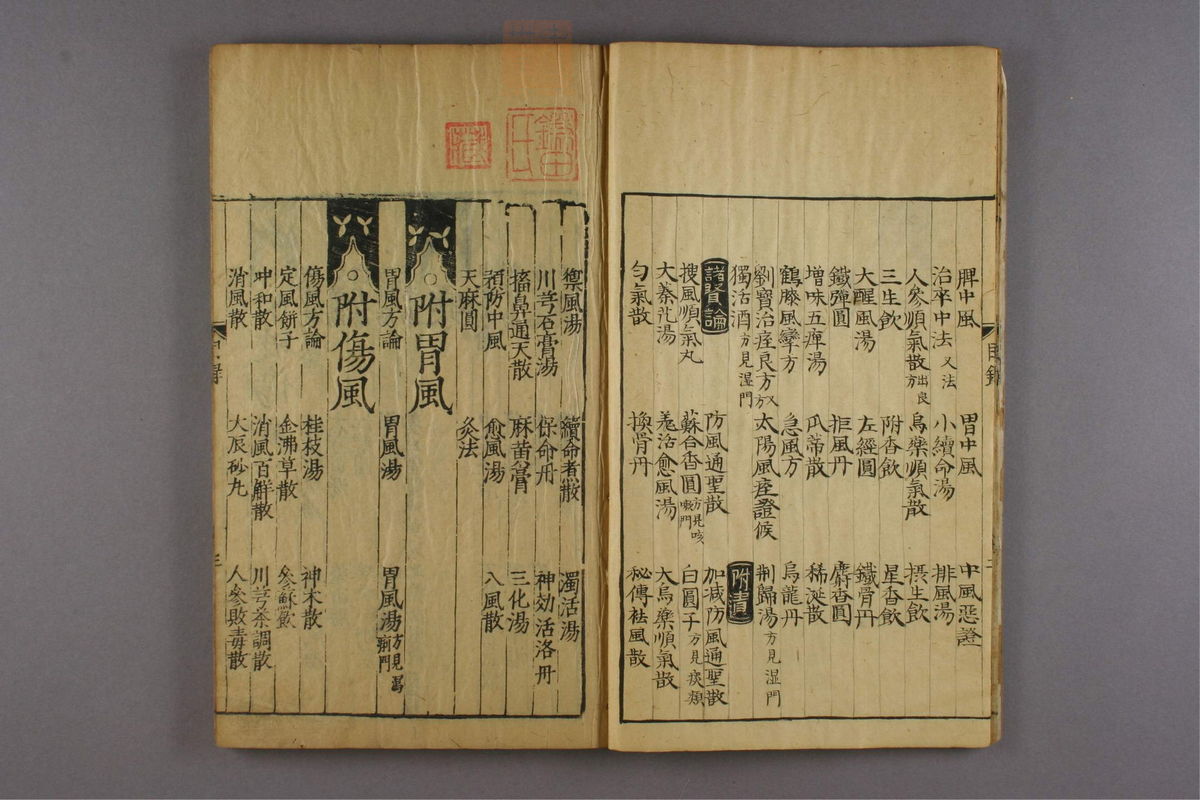 脾中風 胃中風 中風惡證
治卒中法 又法 小續命湯 排風湯
人參順氣散 出良方 烏藥順氣散 攝生飲
三生飲 附香飲 星香飲
大醒風湯 左經圓 鐵骨丹
鐵彈圓 拒風丹 麝香圓
增味五痺湯 瓜蒂散 稀涎散
鶴膝風攣方 急風方 烏龍丹
劉寶治痓良方 太陽風痓證候 荆歸湯 方見濕門
獨活酒 方見濕門 附責
諸賢論 防風通聖散 加减防風通聖散
搜風順氣丸 蘇合香圓 方見咳嗽門 白圓子 方見痰類
大秦艽湯 羗活愈風湯 大烏藥順氣散
勻氣散 換骨丹 秘傳祛風散
目錄
禦風湯 續命煮散 獨活湯
川芎石膏湯 保命丹 神効活洛丹
搐鼻通天散 麻黄膏 三化湯
預防中風 愈風湯 八風散
天麻圓 灸法
附胃風
胃風方論 胃風湯 胃風湯 方見瀉痢門
附傷風
傷風方論 桂枝湯 神木散
定風餅子 金沸草散 參蘇飲
冲和散 消風百解散 川芎茶調散
消風散 大辰砂丸 人參敗毒散